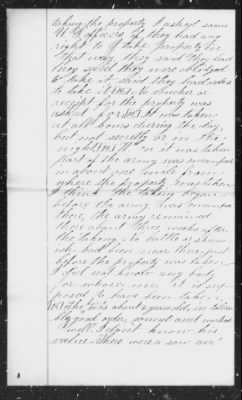 taking the property I asked some
U.S. officers if they had any
right to take property in
that way, they said they had
they said they were obliged
to take it and they had orders
to take it No voucher or
receipt for the property was
asked for It was taken
at all hours during the day
but not secretly or in the
night When it was taken
part of the army was encamped
in about one mile from
where the property was taken
I think the taking began
before the army was encamped
there, the army remained
there about three weeks after
the taking. No battle or skirmish
had been near there just
before the property was taken
I did not know any body
for whose use it is supposed
to have been taken
The was about years old, in tolerably
good order, sound and worked
well. I dont know his
value. There were a sow and